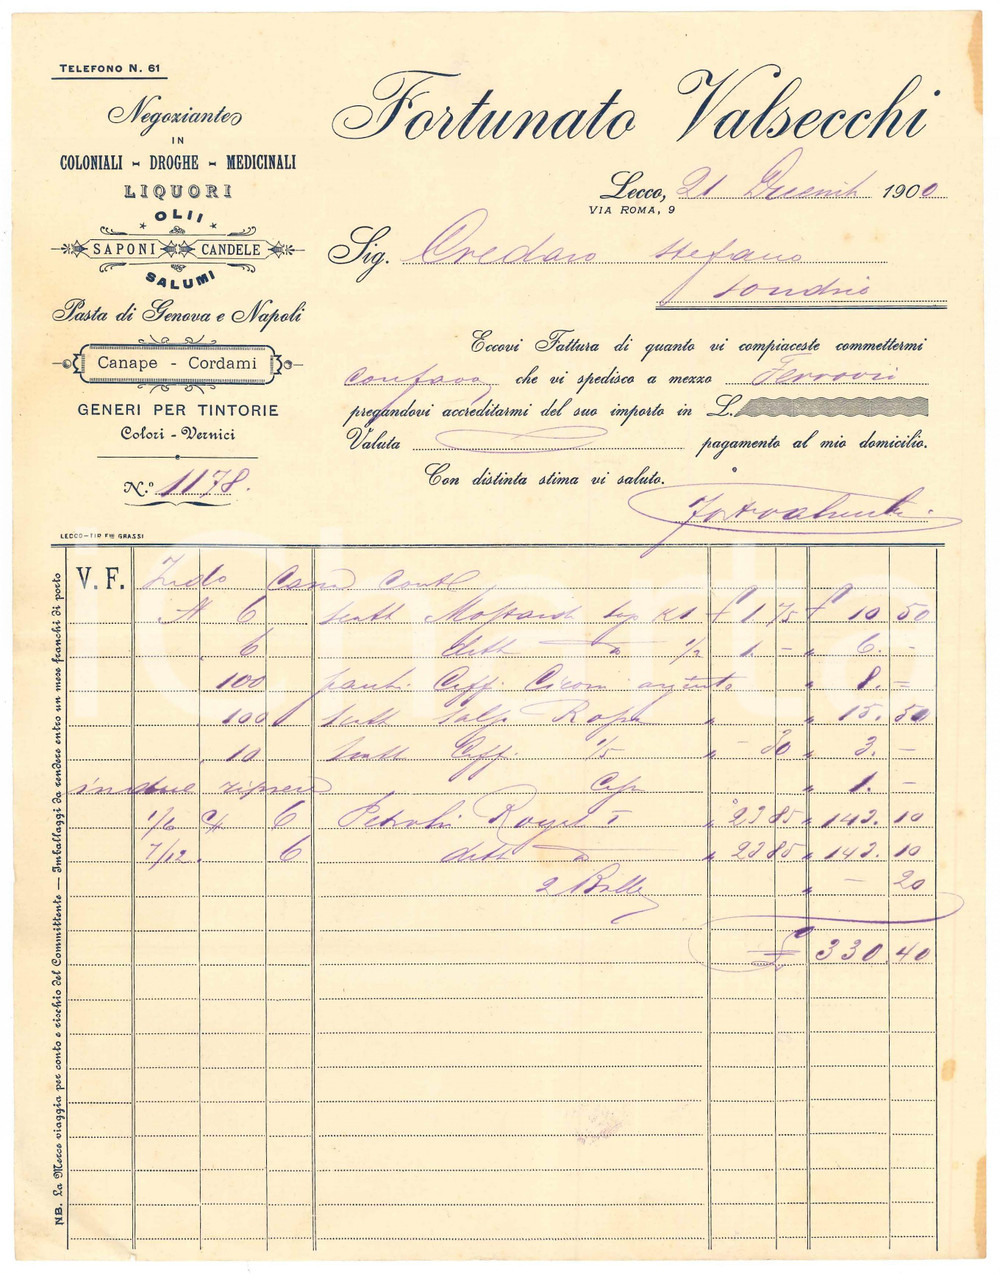 TELEFONO N. 61
Negoziante
IN
COLONIALI - DROGHE - MEDICINALI
LIQUORI
OLII
SAPONI CANDELE
SALUMI
Pasta di Genova e Napoli
Canape - Cordami
GENERI PER TINTORIE
Colori - Vernici
N.º 1178.
LECCO-TIP. Flli GRASSI
Fortunato Valsecchi
Lecco, 21 1900
VIA ROMA, 9
Sig. Credaro Stefano
Sondrio
Eccovi Fattura di quanto vi compiaceste commettermi
che vi spedisco a mezzo Ferrovia
pregandovi accreditarmi del suo importo in L.
Valuta pagamento al mio domicilio.
Con distinta stima vi saluto.
V. F.
N 6 scatt Mostard £ 1 75 £ 10 50
6 dett " 1/2 1. - " 6. -
100 " 8. -
100 scatt " 15. 50
10 scatt 1/5 " - 30 " 3. -
" 1. -
1/6 6 Petrolio Royal " 23 85 " 143. 10
7/12. 6 dett " " 23 85 " 143. 10
2 Bolle " - 20
£ 330. 40
NB. La Merce viaggia per conto e rischio del Committente — Imballaggi da rendere entro un mese franchi di porto
iCharta